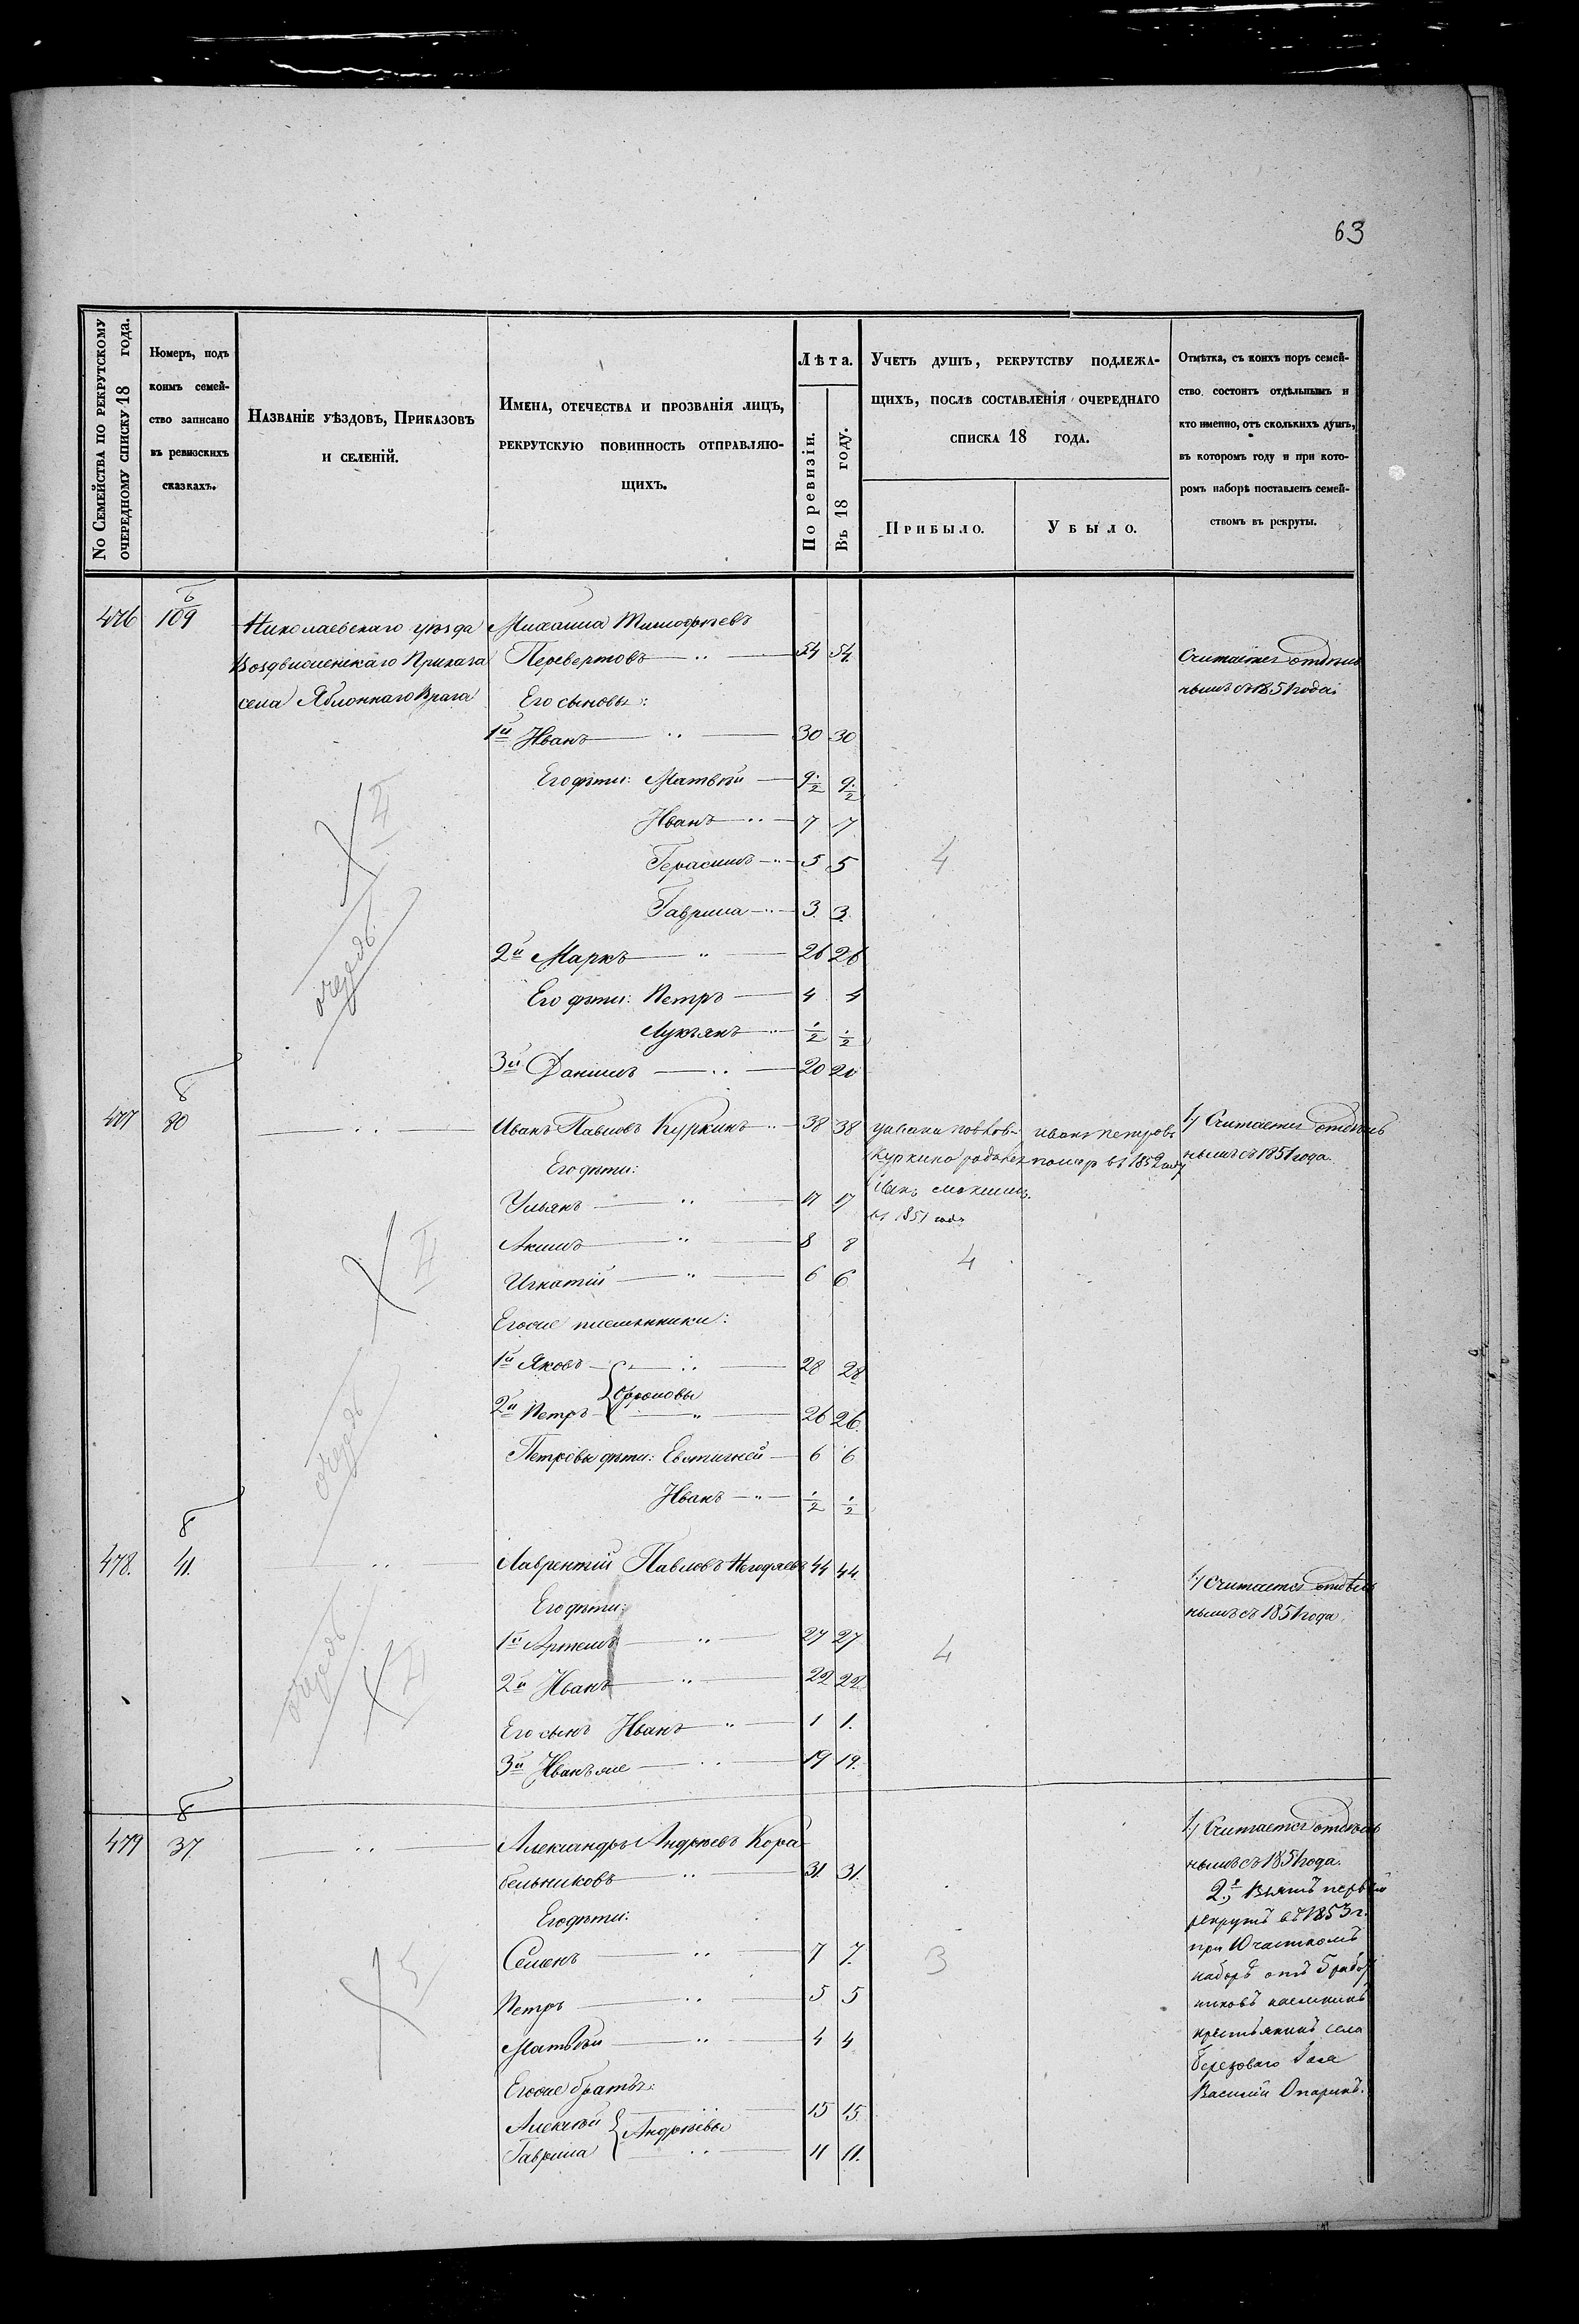 63
№ Семейства по рекрутскому
очередному списку 18 года.
Номеръ, подъ
коимъ семей-
ство записано
въ ревизскихъ
сказкахъ.
Названіе уѣздовъ, Приказовъ
и селеній.
Имена, отечества и прозванія лицъ,
рекрутскую повинность отправляю-
щихъ.
Лѣта.
По ревизіи.
Въ 18 году.
Учетъ душъ, рекрутству подлежа-
щихъ, послѣ составленія очереднаго
списка 18 года.
Прибыло.
Убыло.
Отмѣтка, съ коихъ поръ семей-
ство состоитъ отдѣльнымъ и
кто именно, отъ сколькихъ душъ,
въ которомъ году и при кото-
ромъ наборѣ поставленъ семей-
ствомъ въ рекруты.
476
б
109
Николаевскаго уѣзда
Воздвиженскаго Приказа
села Яблоннаго Врага
Михаила Тимофѣевъ
Перевертовъ 54 54
Считается отдѣль
нымъ съ 1851 года
Его сыновья:
1й Иванъ 30 30
Его дѣти: Матвѣй 9½ 9½
Иванъ 7 7
Герасимъ 5 5
4
Гаврила 3 3
2й Маркъ 26 26
Его дѣти: Петръ 4 4
Лукьянъ ½ ½
3й Данилъ 20 20
X II
очередь
477
б
80
Иванъ Павловъ Куркинъ 38 38
Куркина
въ 1851 году
Иванъ Петровъ
помер въ 1852 году
1/ Считается отдѣль
нымъ съ 1851 года.
Его дѣти:
Ульянъ 17 17
Акимъ 8 8
4
Игнатій 6 6
Его же племянники:
1й Яковъ 28 28
2й Петръ 26 26
Петровы дѣти: Евстигней 6 6
Иванъ ½ ½
X II
очередь
478.
б
41.
Лаврентій Павловъ Негодяевъ 44 44
1/ Считается отдѣль
нымъ съ 1851 года.
Его дѣти:
1й Артемъ 27 27
4
2й Иванъ 22 22
Его сынъ Иванъ 1 1.
3й Иванъ же 19 19.
очередь
X II
479
б
37
Александръ Андрѣевъ Кора
бельниковъ 31. 31.
1/ Считается отдѣль
нымъ съ 1851 года.
2е, Взятъ первый
рекрутъ въ 1853 г.
при 10 частномъ
наборѣ отъ 5 работ
никовъ наемникъ
крестьянинъ села
Березоваго
Василій Опаринъ.
Его дѣти:
Семенъ 7 7.
3
Петръ 5 5
Матвѣй 4 4
Его же братья:
Алексѣй 15 15
Андрѣевы
Гаврила 11 11.
X 5